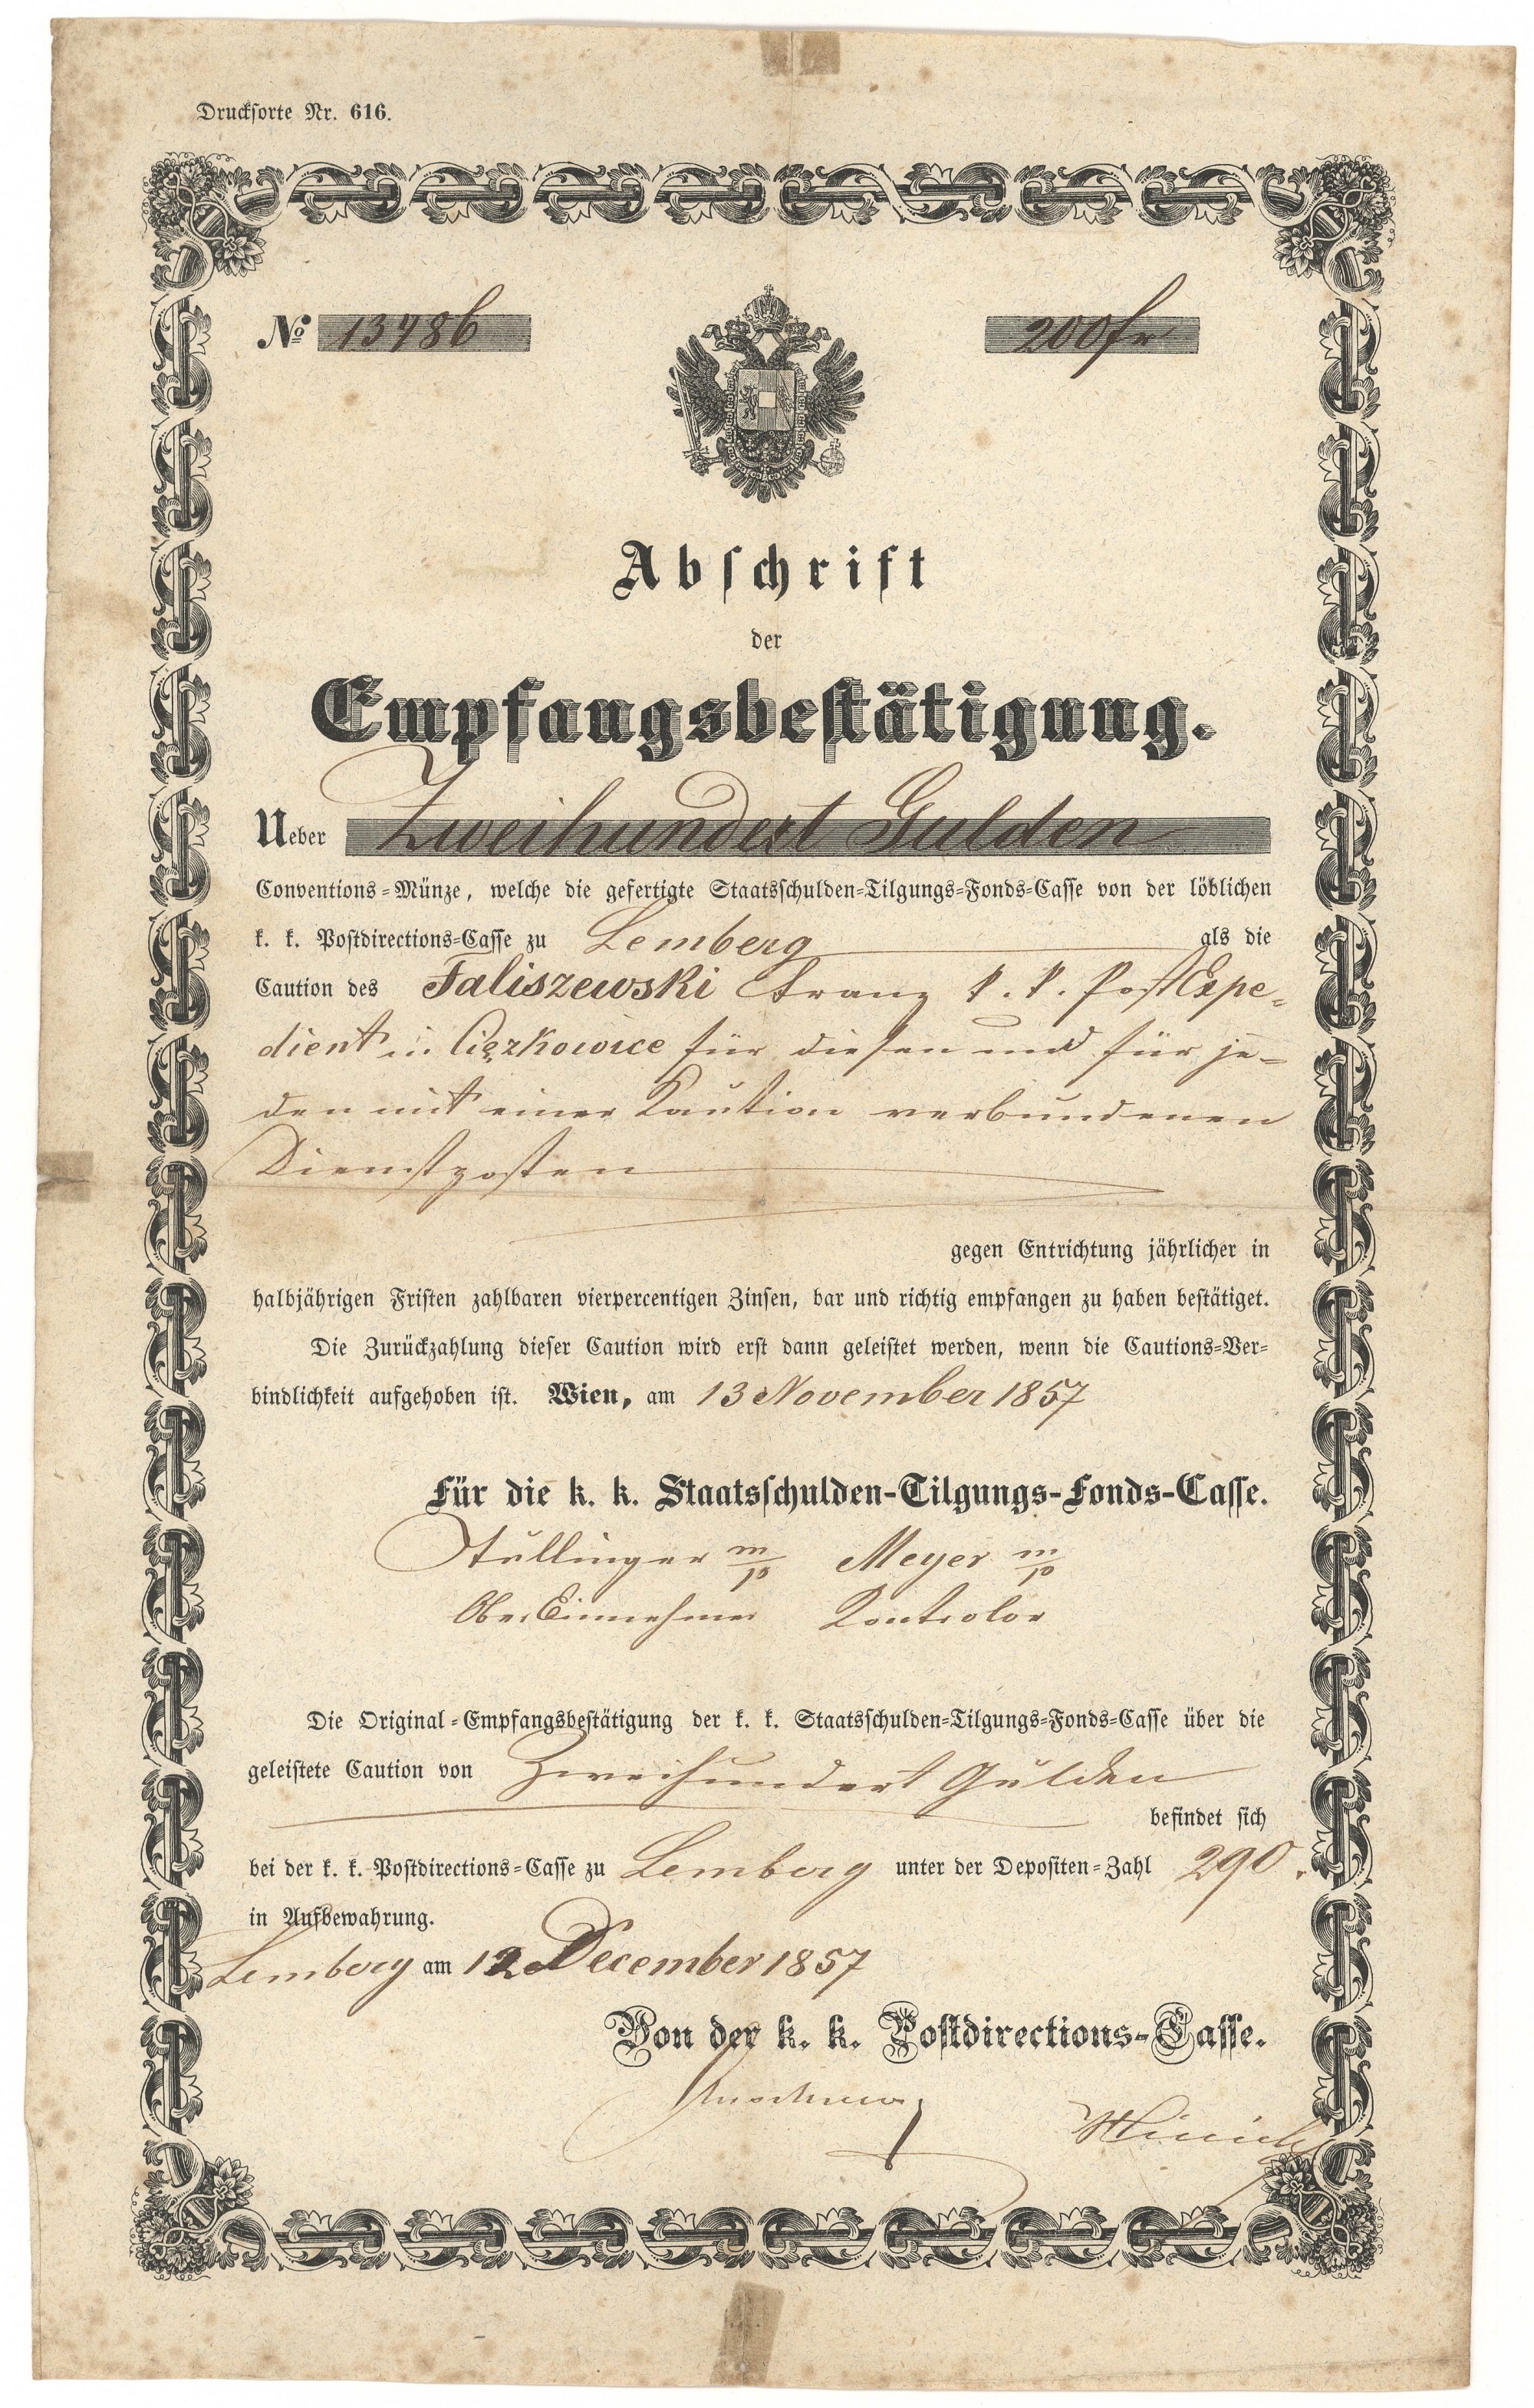 Drucksorte Nr. 616.
No 13486 200 fr
Abschrift
der
Empfangsbestätigung.
Ueber Zweihundert Gulden
Conventions-Münze, welche die gefertigte Staatsschulden-Tilgungs-Fonds-Casse von der löblichen
k. k. Postdirections-Casse zu Lemberg als die
Caution des Faliszewski Franz k. k. PostExpe-
dient in Ciężkowice für diesen und für je-
den mit einer Kaution verbundenen
Dienstposten
gegen Entrichtung jährlicher in
halbjährigen Fristen zahlbaren vierpercentigen Zinsen, bar und richtig empfangen zu haben bestätiget.
Die Zurückzahlung dieser Caution wird erst dann geleistet werden, wenn die Cautions-Ver-
bindlichkeit aufgehoben ist. Wien, am 13 November 1857
Für die k. k. Staatsschulden-Tilgungs-Fonds-Casse.
m/p Meyer m/p
OberEinnehmer Kontrolor
Die Original-Empfangsbestätigung der k. k. Staatsschulden-Tilgungs-Fonds-Casse über die
geleistete Caution von Zweihundert Gulden
befindet sich
bei der k. k. Postdirections-Casse zu Lemberg unter der Depositen-Zahl 290.
in Aufbewahrung.
Lemberg am 12 December 1857
Von der k. k. Postdirections-Casse.